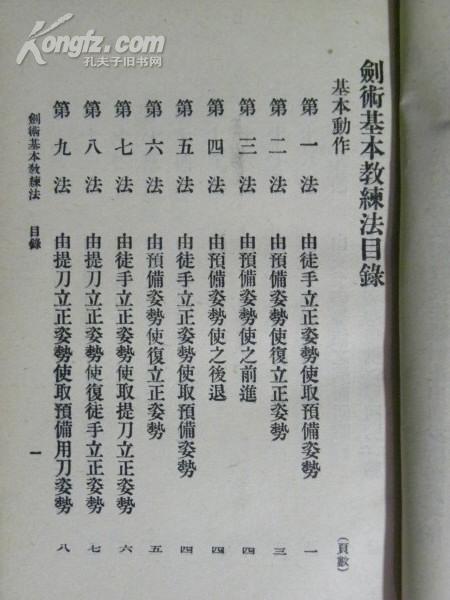 Kongfz.com
孔夫子旧书网
劍術基本教練法目錄
基本動作
(頁數)
第一法 由徒手立正姿勢使取預備姿勢 一
第二法 由預備姿勢使復立正姿勢 三
第三法 由預備姿勢使之前進 四
第四法 由預備姿勢使之後退 四
第五法 由徒手立正姿勢使取預備姿勢 四
第六法 由預備姿勢使復立正姿勢 五
第七法 由徒手立正姿勢使取提刀立正姿勢 六
第八法 由提刀立正姿勢使復徒手立正姿勢 七
第九法 由提刀立正姿勢使取預備用刀姿勢 八
劍術基本教練法 目錄 一